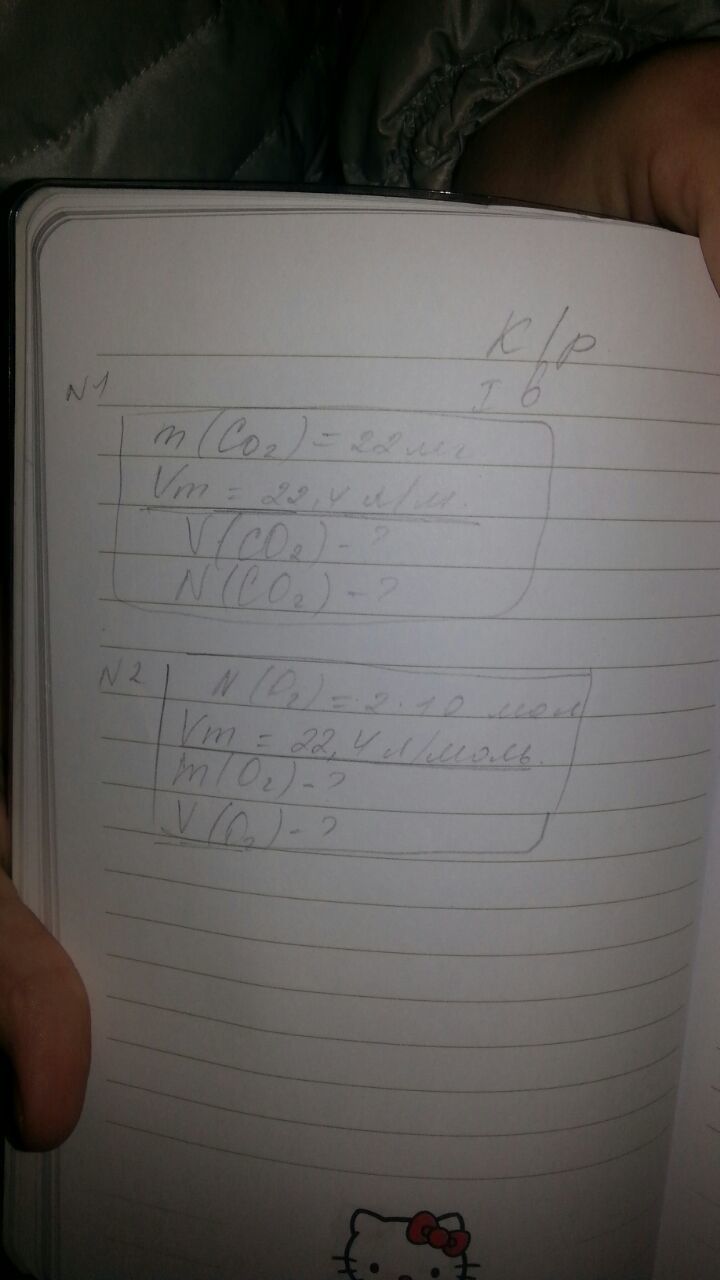 К/р
I в
N1
m(CO₂) = 22 мг
Vm = 22,4 л/м.
V(CO₂) - ?
N(CO₂) - ?
N2
N(O₂) = 2 · 10 мол
Vm = 22,4 л/моль.
m(O₂) - ?
V(O₂) - ?